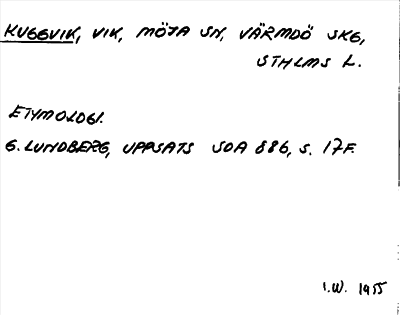 KUGGVIK, VIK, MÖJA SN, VÄRMDÖ SKG,
STHLMS L.
ETYMOLOGI.
G. LUNDBERG, UPPSATS SOA 886, S. 17F.
I.W. 1955